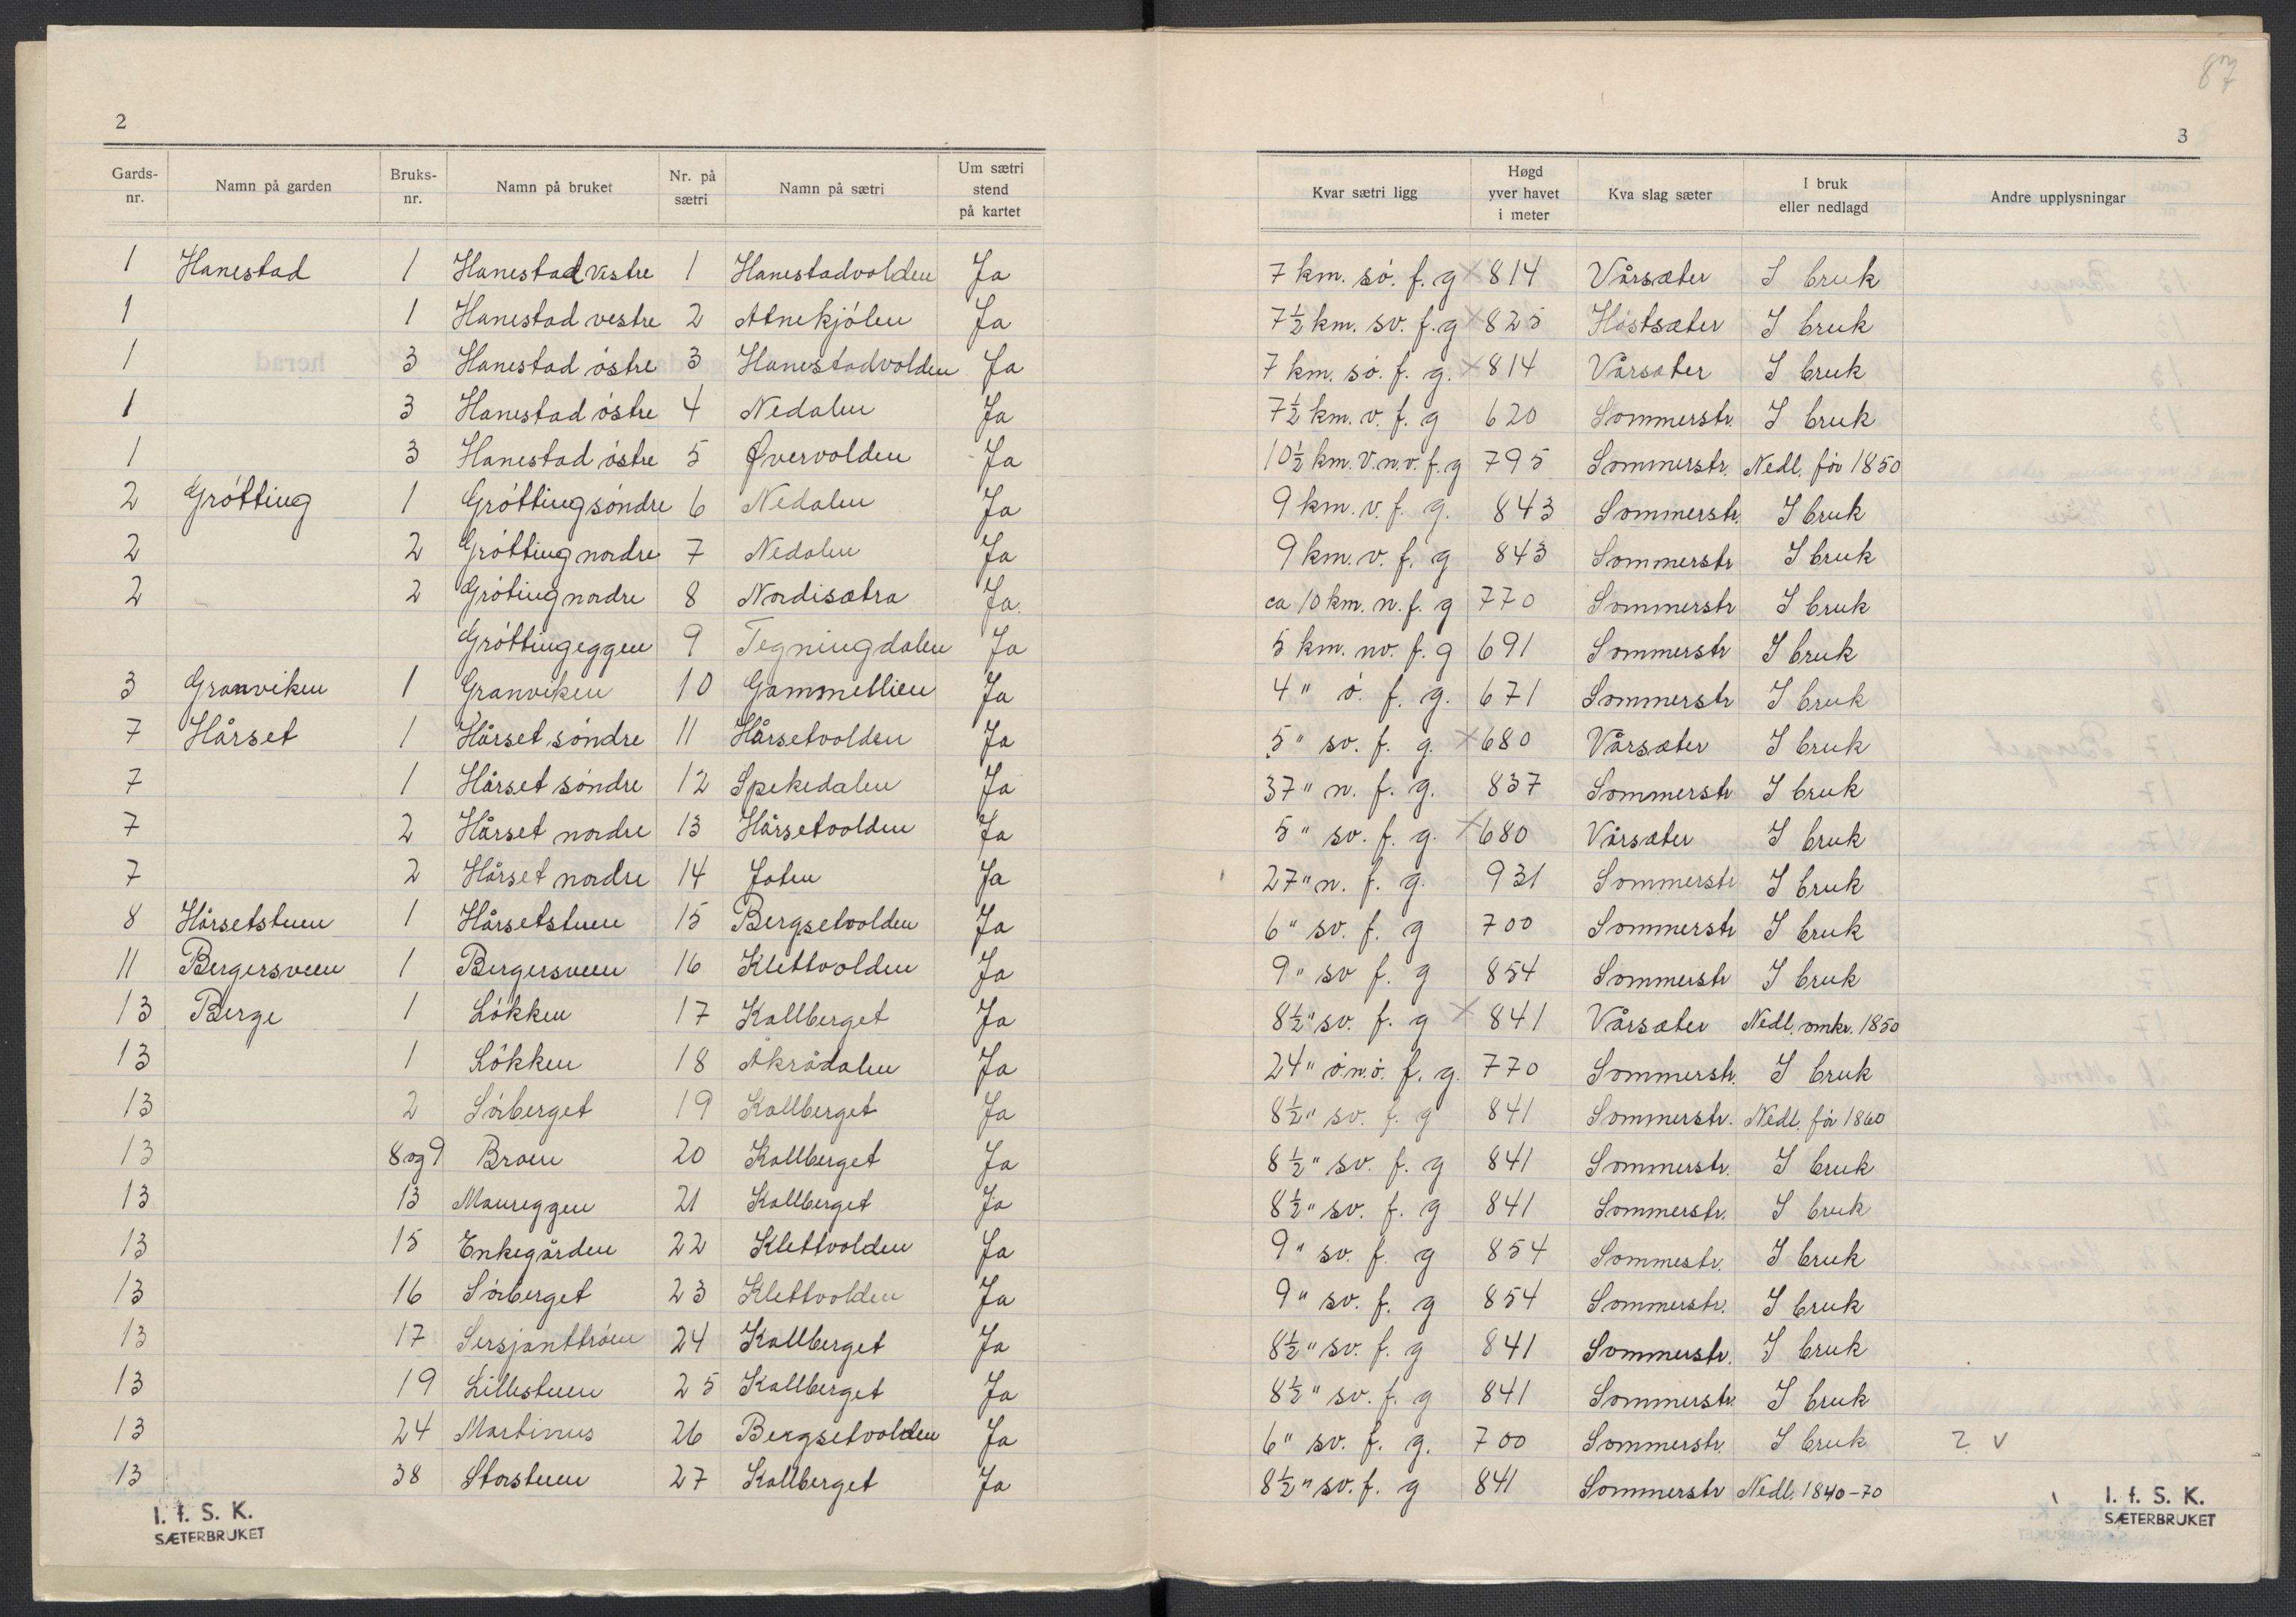 87
2
3
Gards-nr. Namn på garden Bruks-nr. Namn på bruket Nr. på sætri Namn på sætri Um sætri stend på kartet Kvar sætri ligg Høgd yver havet i meter Kva slag sæter I bruk eller nedlagd Andre upplysningar
1 Hanestad 1 Hanestad vestre 1 Hanestadvolden Ja 7 km. sö. f. g × 814 Vårsæter I bruk
1 1 Hanestad vestre 2 Atnekjölen Ja 7½ km. sv. f. g × 825 Höstsæter I bruk
1 3 Hanestad östre 3 Hanestadvolden Ja 7 km. sö. f. g. × 814 Vårsæter I bruk
1 3 Hanestad östre 4 Nedalen Ja 7½ km. v. f. g 620 Sommerstr. I bruk
1 3 Hanestad östre 5 Øvervolden Ja 10½ km. V.n.v. f. g 795 Sommerstr. Nedl. för 1850
2 Grötting 1 Grötting söndre 6 Nedalen Ja 9 km. v. f. g. 843 Sommerstr. I bruk
2 2 Grötting nordre 7 Nedalen Ja 9 km. v. f. g 843 Sommerstr I bruk
2 2 Gröting nordre 8 Nordisætra Ja. ca 10 km. n. f. g 770 Sommerstr I bruk
Gröttingeggen 9 Tegningdalen Ja 5 km. nv. f. g 691 Sommerstr I bruk
3 Granviken 1 Granviken 10 Gammellien Ja 4 " ö. f. g. 671 Sommerstr I bruk
7 Hårset 1 Hårset söndre 11 Hårsetvolden Ja 5 " sv. f. g. × 680 Vårsæter I bruk
7 1 Hårset söndre 12 Spekedalen Ja 37 " n. f. g. 837 Sommerstr I bruk
7 2 Hårset nordre 13 Hårsetvolden Ja 5 " sv. f. g. × 680 Vårsæter I bruk
7 2 Hårset nordre 14 Joten Ja 27 " n. f. g. 931 Sommerstr I bruk
8 Hårsetstuen 1 Hårsetstuen 15 Bergsetvolden Ja 6 " sv. f. g 700 Sommerstr I bruk
11 Bergersveen 1 Bergersveen 16 Klettvolden Ja 9 " sv f. g 854 Sommerstr I bruk
13 Berge 1 Lökken 17 Kallberget Ja 8½ " sv. f. g × 841 Vårsæter Nedl. omkr. 1850
13 1 Lökken 18 Åkrådalen Ja 24 " ö.n.ö. f. g. 770 Sommerstr. I bruk
13 2 Sörberget 19 Kallberget Ja 8½ " sv. f. g 841 Sommerstr. Nedl. för 1860
13 8 og 9 Broen 20 Kallberget Ja 8½ " sv. f. g 841 Sommerstr. I bruk
13 13 Maureggen 21 Kallberget Ja 8½ " sv. f. g 841 Sommerstr. I bruk
13 15 Enkegården 22 Klettvolden Ja 9 " sv. f. g 854 Sommestr. I bruk
13 16 Sörberget 23 Klettvolden Ja 9 " sv. f. g 854 Sommerstr. I bruk
13 17 Sersjanttröen 24 Kallberget Ja 8½ " sv. f. g 841 Sommerstr. I bruk
13 19 Lillestuen 25 Kallberget Ja 8½ " sv. f. g 841 Sommerstr. I bruk
13 24 Martinus 26 Bergsetvolden Ja 6 " sv. f. g. 700 Sommerstr. I bruk ? v
13 38 Storstuen 27 Kallberget Ja 8½ " sv. f. g 841 Sommerstr Nedl. 1840-70
I. f. S. K.
SÆTERBRUKET
I. f. S. K.
SÆTERBRUKET